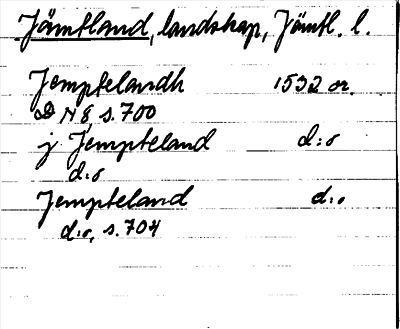 Jämtland, landskap, Jämtl. l.
Jemptelandh 1532 or.
D N 8, s. 700
j Jempteland d:o
d:o
Jempteland d:o
d:o, s. 704